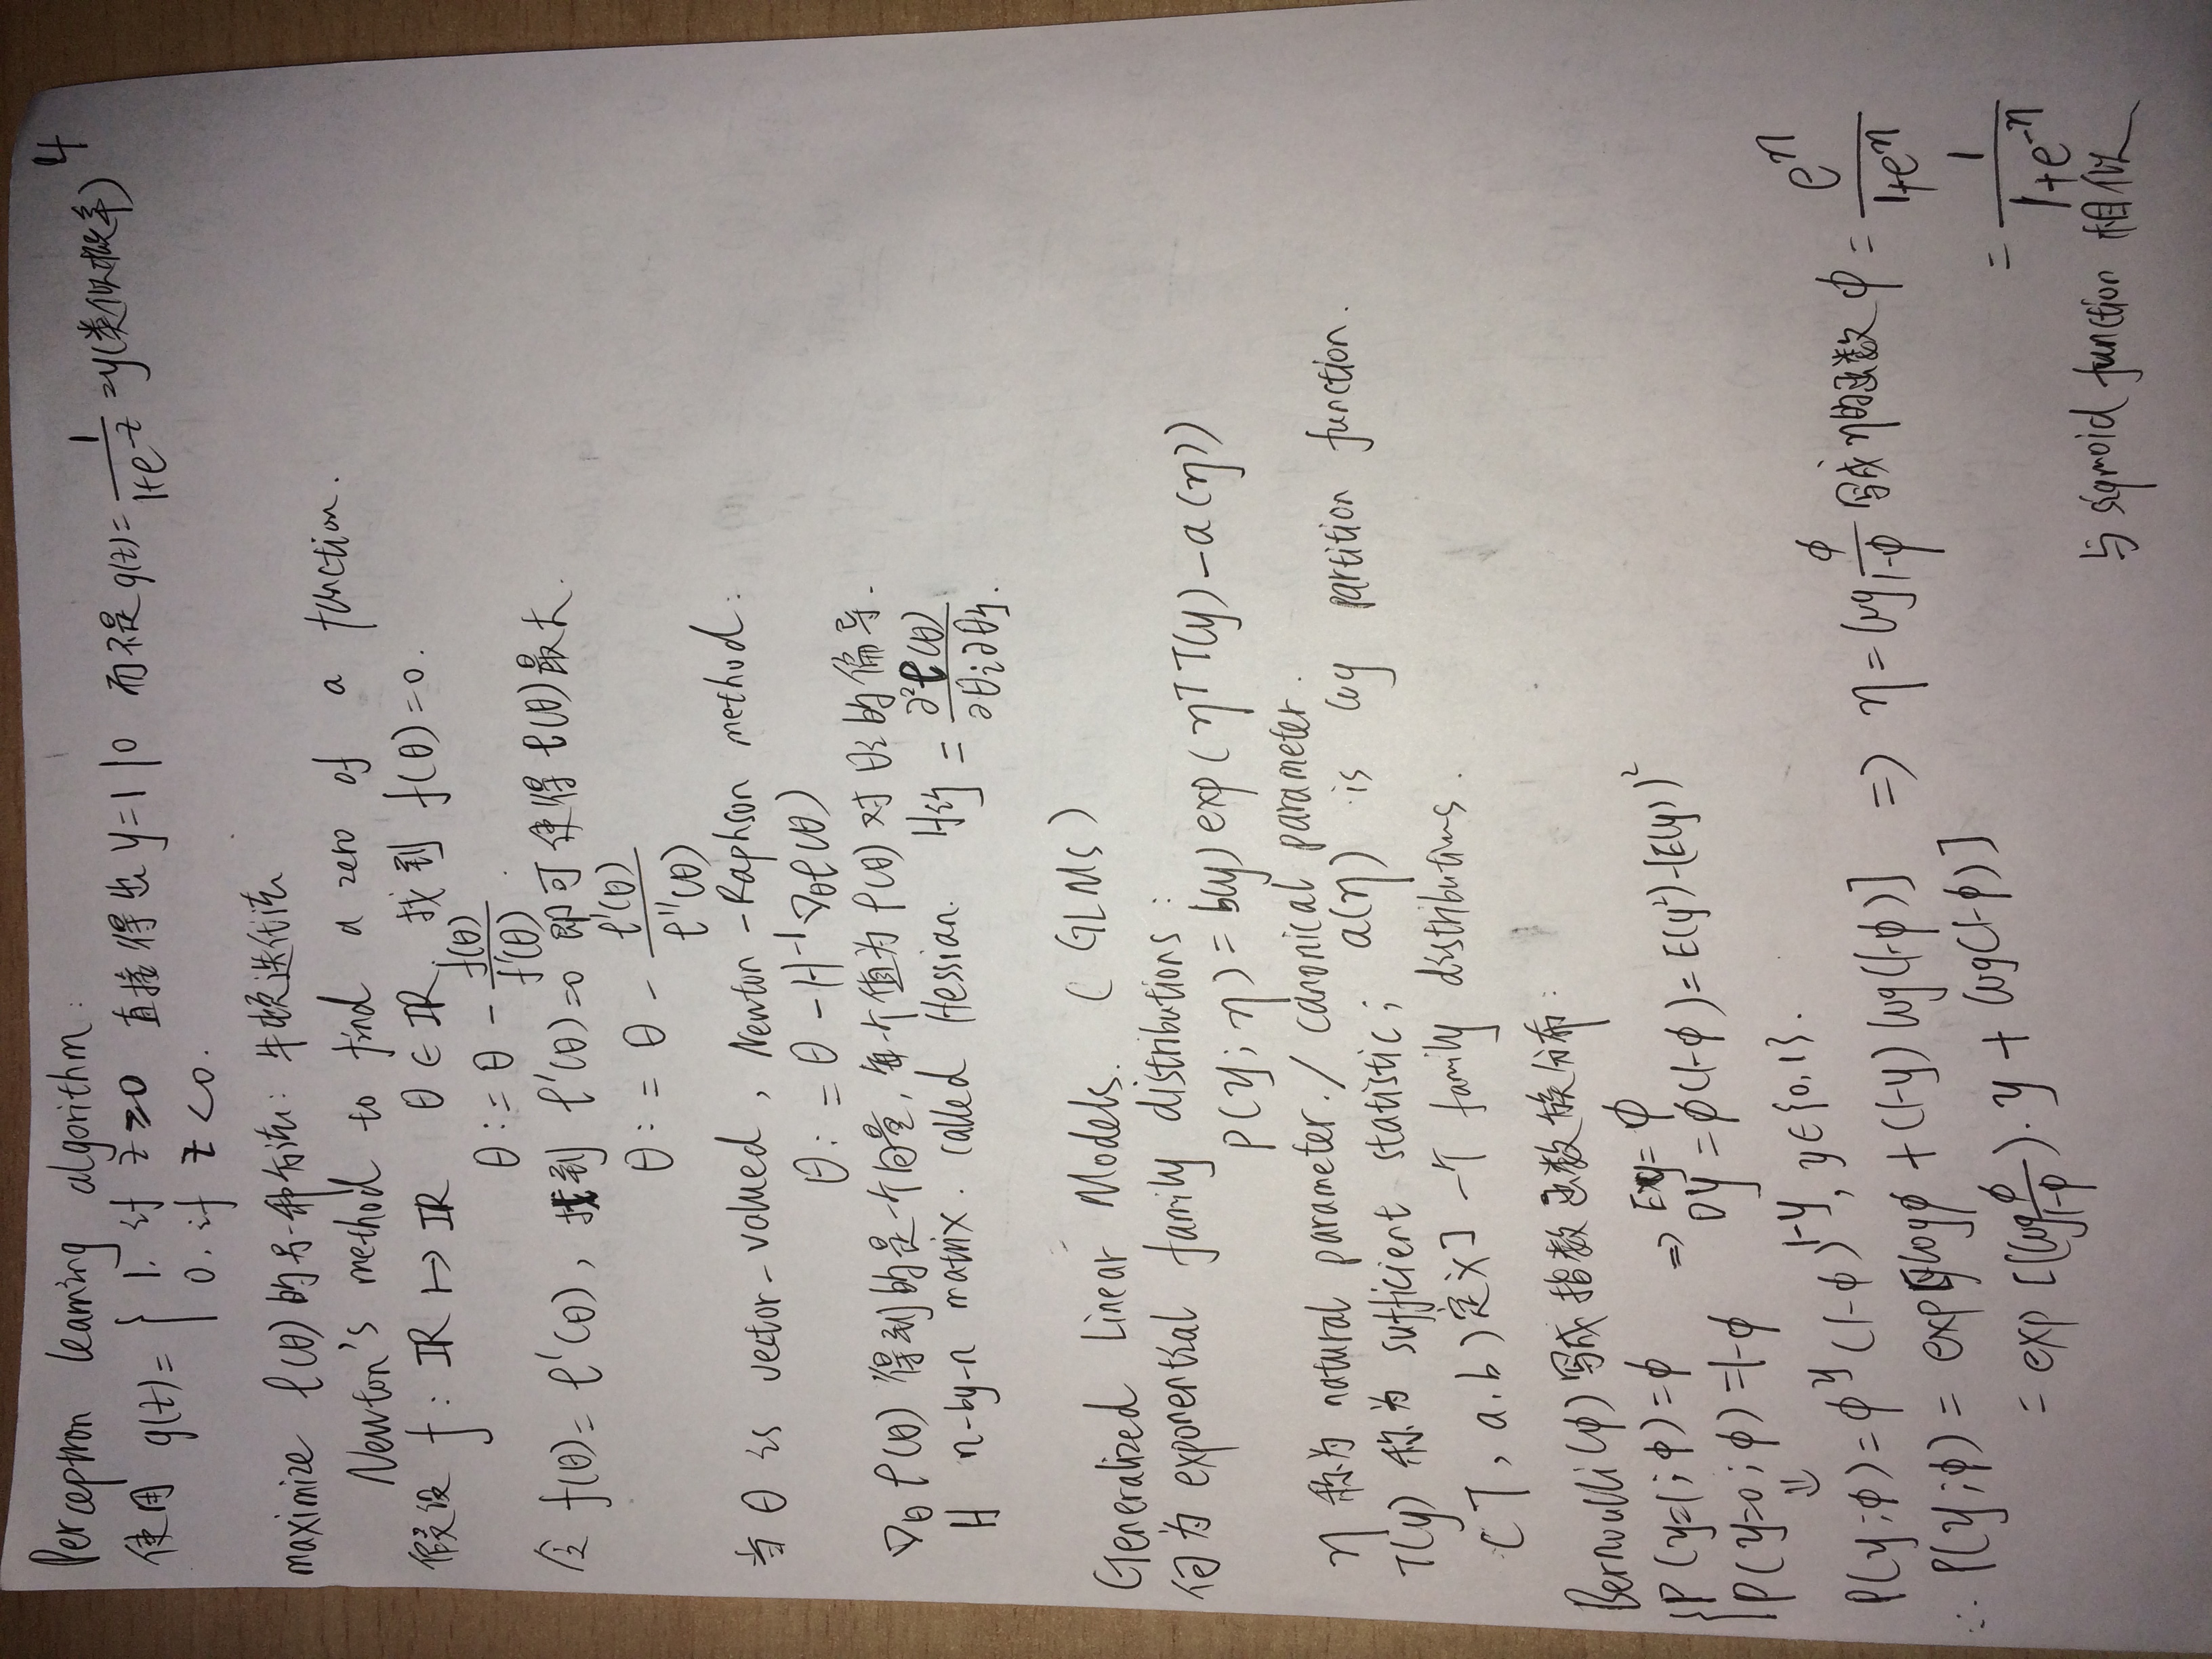 4
Perceptron learning algorithm:
使用 g(z)= { 1. if z≥0 直接得出 y=1|0 而不是 g(z)= 1/(1+e^-z) =y(类似概率)
0. if z<0.
maximize ℓ(θ)的另一种方法: 牛顿迭代法
Newton's method to find a zero of a function.
假设 f: ℝ ↦ ℝ θ∈ℝ. 找到 f(θ)=0.
θ := θ - f(θ)/f'(θ).
令 f(θ)= ℓ'(θ), 找到 ℓ'(θ)=0 即可使得 ℓ(θ)最大.
θ := θ - ℓ'(θ)/ℓ''(θ)
当 θ is vector-valued, Newton-Raphson method:
θ := θ - H^-1 ∇_θ ℓ(θ)
∇_θ ℓ(θ) 得到的是一个向量, 每个值为 ℓ(θ) 对 θi 的偏导.
H n-by-n matrix. called Hessian. Hij = ∂²ℓ(θ)/∂θi∂θj.
Generalized Linear Models. (GLMs)
何为 exponential family distributions:
P(y; η) = b(y) exp(η^T T(y) - a(η))
η 称为 natural parameter. / canonical parameter.
T(y) 称为 sufficient statistic; a(η) is log partition function.
(T, a, b) 定义了一个 family distributions.
Bernoulli(φ) 写成指数函数族分布:
{ P(y=1; φ)=φ ⇒ Ey= φ
P(y=0; φ)=1-φ Dy = φ(1-φ)= E(y²)-(E(y))²
⇓
P(y;φ)= φ^y (1-φ)^1-y, y∈{0,1}.
∴ P(y;φ) = exp[ylogφ + (1-y) log(1-φ)] ⇒ η = log φ/(1-φ) 写成 η的函数 φ = e^η/(1+e^η)
= exp[(log φ/(1-φ))·y + log(1-φ)] = 1/(1+e^-η)
与 sigmoid function 相似